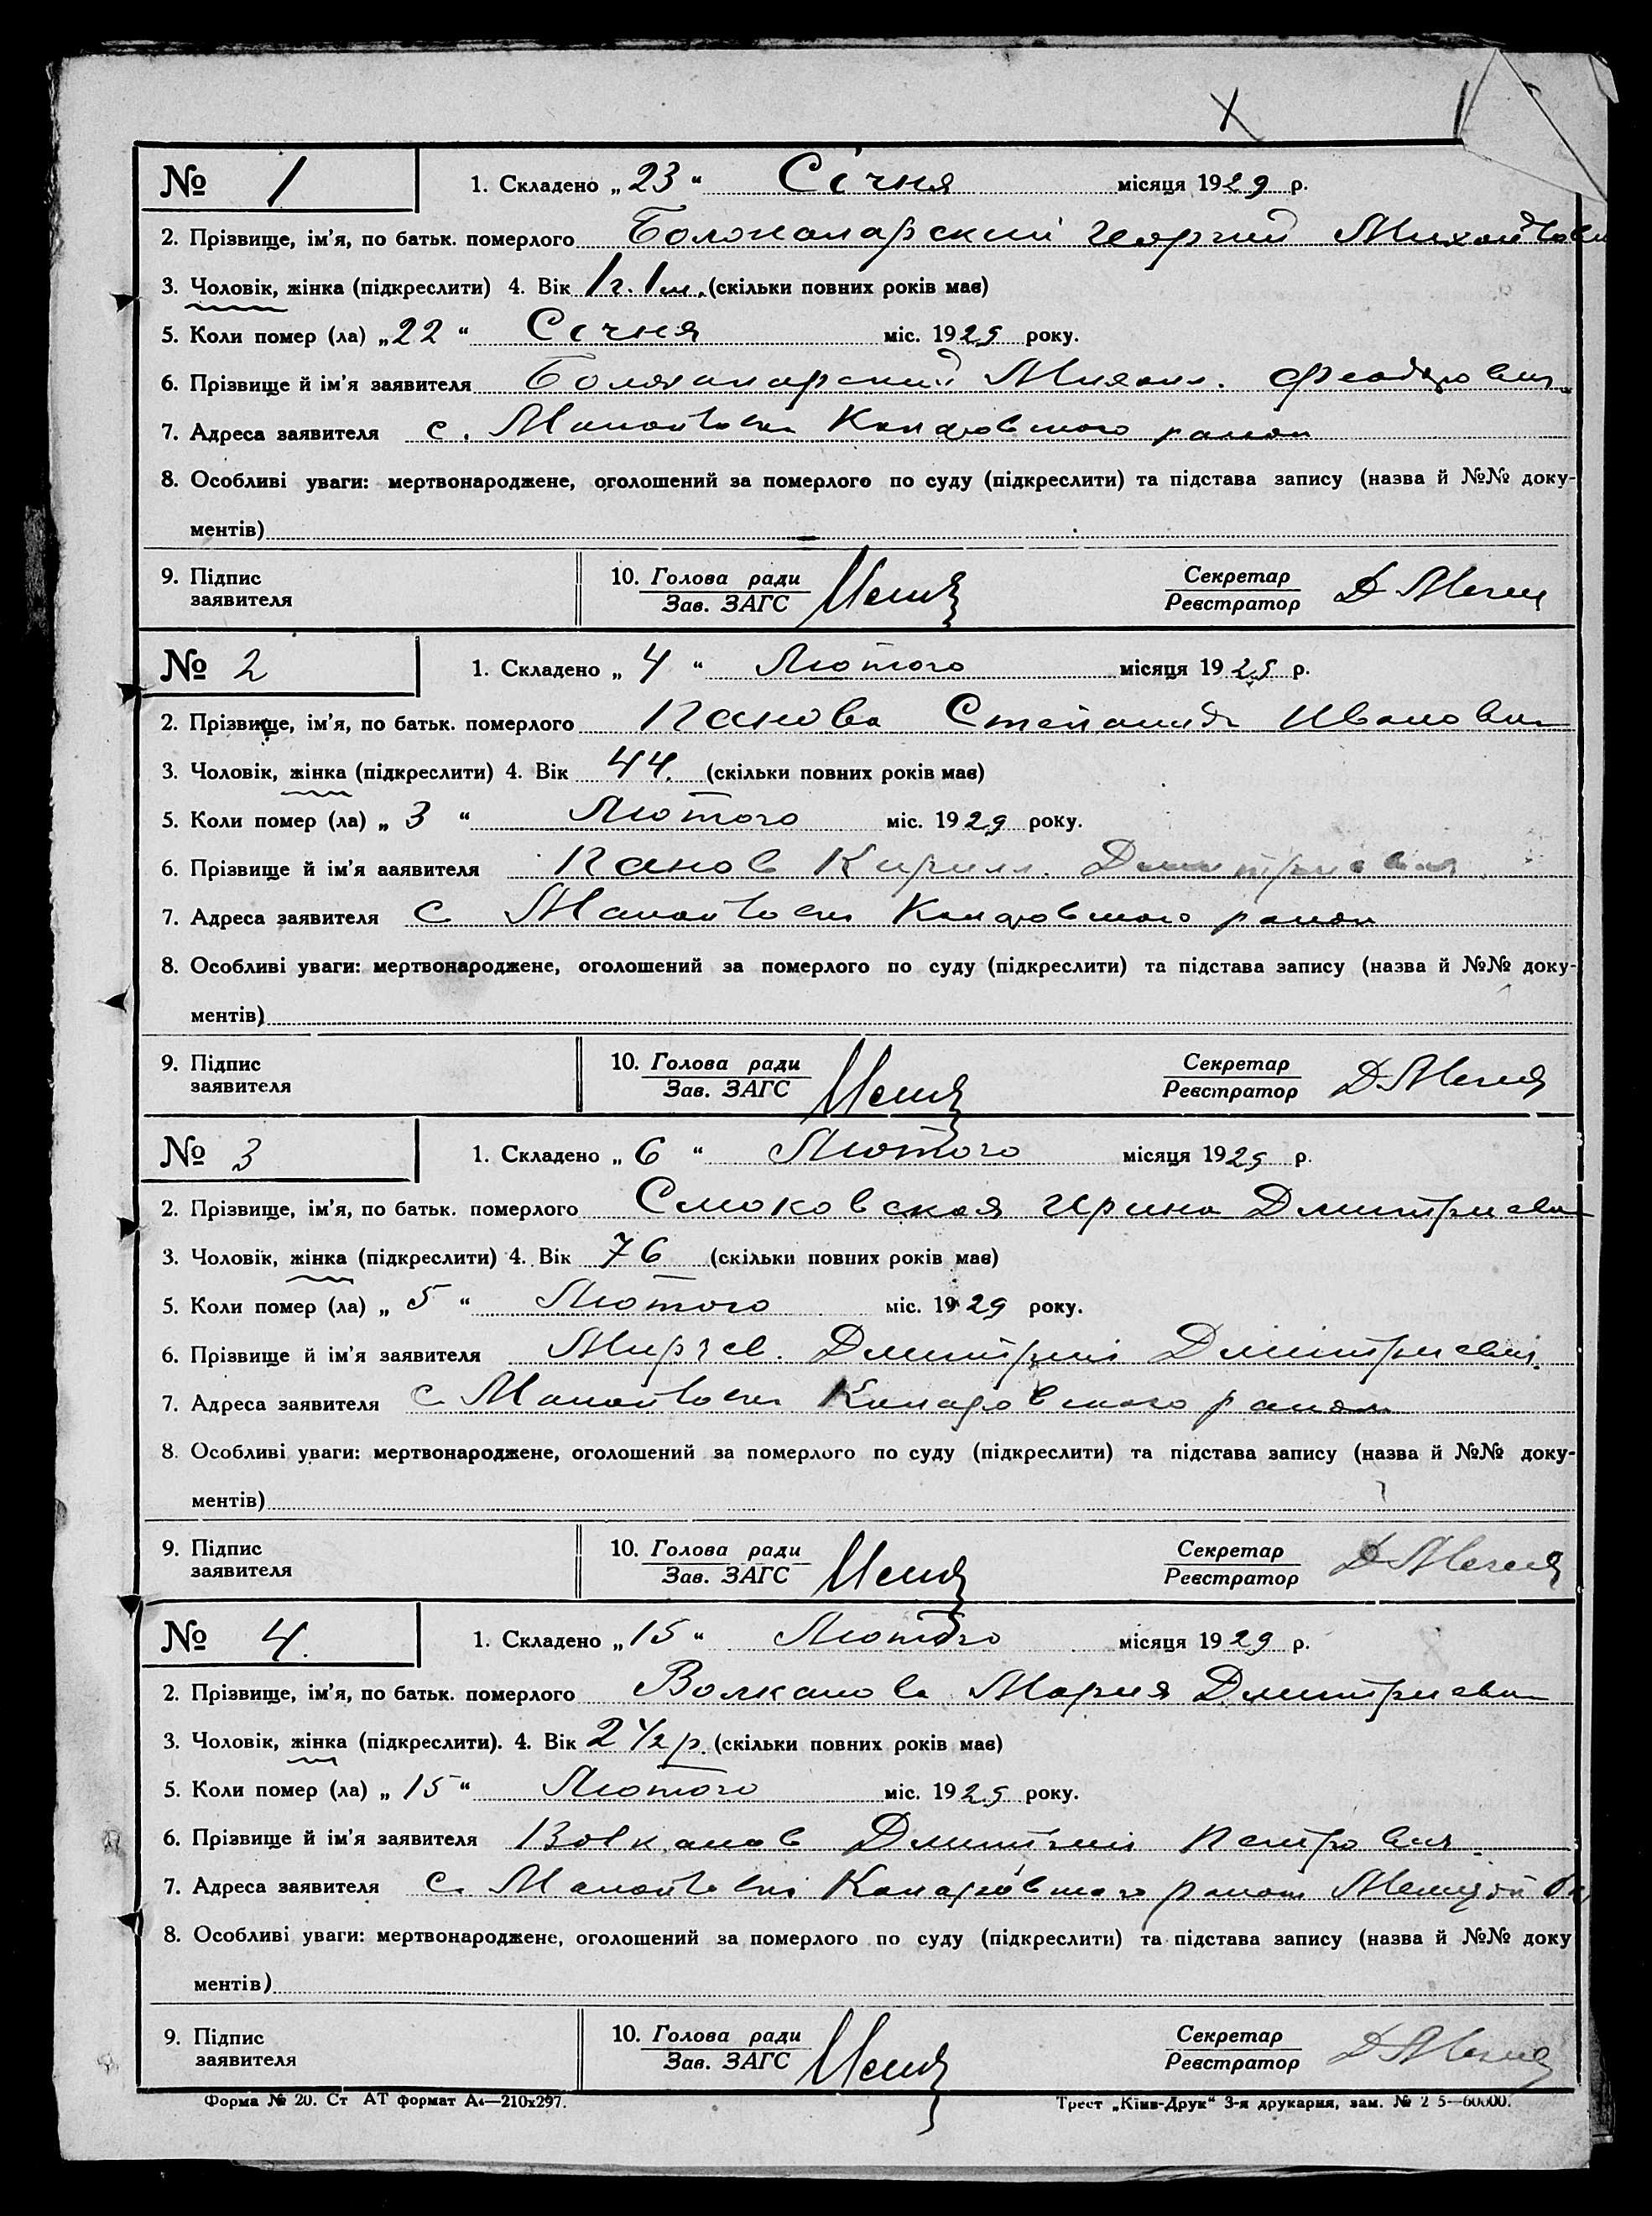 № 1
1. Складено „23“ Січня місяця 1929 р.
2. Прізвище, ім'я, по батьк. померлого Георгий
3. Чоловік, жінка (підкреслити) 4. Вік 1 г. 1 м. (скільки повних років має)
5. Коли помер (ла) „22“ Січня міс. 1929 року.
6. Прізвище й ім'я заявителя Михаил. Феодорович
7. Адреса заявителя с. района
8. Особливі уваги: мертвонароджене, оголошений за померлого по суду (підкреслити) та підстава запису (назва й №№ доку-
ментів)
9. Підпис заявителя
10. Голова ради
Зав. ЗАГС
Секретар
Реєстратор
№ 2
1. Складено „4“ Лютого місяця 1929 р.
2. Прізвище, ім'я, по батьк. померлого Панова Степанида Ивановна
3. Чоловік, жінка (підкреслити) 4. Вік 44. (скільки повних років має)
5. Коли помер (ла) „3“ Лютого міс. 1929 року.
6. Прізвище й ім'я заявителя Панов Кирилл. Дмитриевич
7. Адреса заявителя с района
8. Особливі уваги: мертвонароджене, оголошений за померлого по суду (підкреслити) та підстава запису (назва й №№ доку-
ментів)
9. Підпис заявителя
10. Голова ради
Зав. ЗАГС
Секретар
Реєстратор
№ 3
1. Складено „6“ Лютого місяця 1929 р.
2. Прізвище, ім'я, по батьк. померлого Смоковская Ирина Дмитриевна
3. Чоловік, жінка (підкреслити) 4. Вік 76 (скільки повних років має)
5. Коли помер (ла) „5“ Лютого міс. 1929 року.
6. Прізвище й ім'я заявителя Мирчев. Дмитрий Дмитриевич
7. Адреса заявителя с района
8. Особливі уваги: мертвонароджене, оголошений за померлого по суду (підкреслити) та підстава запису (назва й №№ доку-
ментів)
9. Підпис заявителя
10. Голова ради
Зав. ЗАГС
Секретар
Реєстратор
№ 4.
1. Складено „15“ Лютого місяця 1929 р.
2. Прізвище, ім'я, по батьк. померлого Волканова Мария Дмитриевна
3. Чоловік, жінка (підкреслити). 4. Вік 2 1/2 р. (скільки повних років має)
5. Коли помер (ла) „15“ Лютого міс. 1929 року.
6. Прізвище й ім'я заявителя Волканов Дмитрий Петрович
7. Адреса заявителя с.
8. Особливі уваги: мертвонароджене, оголошений за померлого по суду (підкреслити) та підстава запису (назва й №№ доку
ментів)
9. Підпис заявителя
10. Голова ради
Зав. ЗАГС
Секретар
Реєстратор
Форма № 20. Ст АТ формат А4—210х297.
Трест „Київ-Друк“ 3-я друкарня, зам. № 2 5—60000.